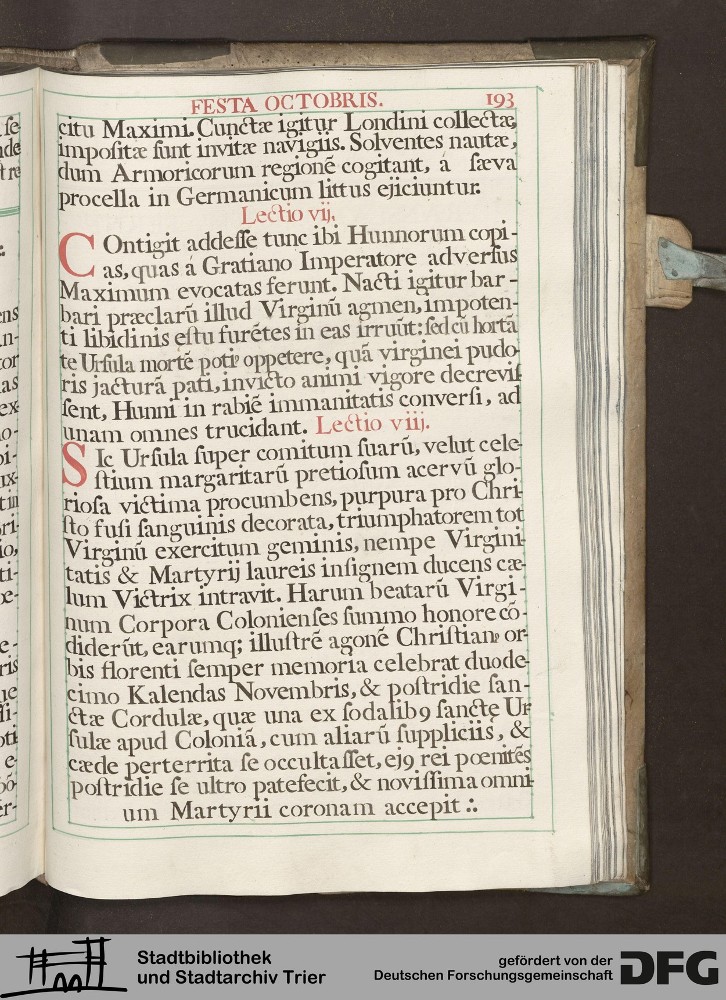 FESTA OCTOBRIS. 193
citu Maximi. Cunctæ igitur Londini collectæ,
impoſitæ ſunt invitæ navigiis. Solventes nautæ,
dum Armoricorum regionē cogitant, á ſæva
procella in Germanicum littus ejiciuntur.
Lectio vij.
COntigit addeſſe tunc ibi Hunnorum copi-
as, quas á Gratiano Imperatore adverſus
Maximum evocatas ferunt. Nacti igitur bar-
bari præclarū illud Virginū agmen, impoten-
ti libidinis eſtu furētes in eas irruūt: ſed cū hortā
te Urſula mortē poti9 oppetere, quā virginei pudo-
ris jacturā pati, invicto animi vigore decreviſ
ſent, Hunni in rabiē immanitatis converſi, ad
unam omnes trucidant. Lectio viij.
SIc Urſula ſuper comitum ſuarū, velut cele-
ſtium margaritarū pretioſum acervū glo-
rioſa victima procumbens, purpura pro Chri-
ſto fuſi ſanguinis decorata, triumphatorem tot
Virginū exercitum geminis, nempe Virgini-
tatis & Martyrij laureis inſignem ducens cæ-
lum Victrix intravit. Harum beatarū Virgi-
num Corpora Colonienſes ſummo honore cō-
diderūt, earumq; illuſtrē agonē Chriſtian9 or-
bis florenti ſemper memoria celebrat duode-
cimo Kalendas Novembris, & poſtridie ſan-
ctæ Cordulæ, quæ una ex ſodalib9 ſanctę Ur
ſulæ apud Coloniā, cum aliarū ſuppliciis, &
cæde perterrita ſe occultaſſet, ej9 rei pœnitēs
poſtridie ſe ultro patefecit, & noviſſima omni-
um Martyrii coronam accepit ∴
Stadtbibliothek
und Stadtarchiv Trier
gefördert von der
Deutschen Forschungsgemeinschaft
DFG